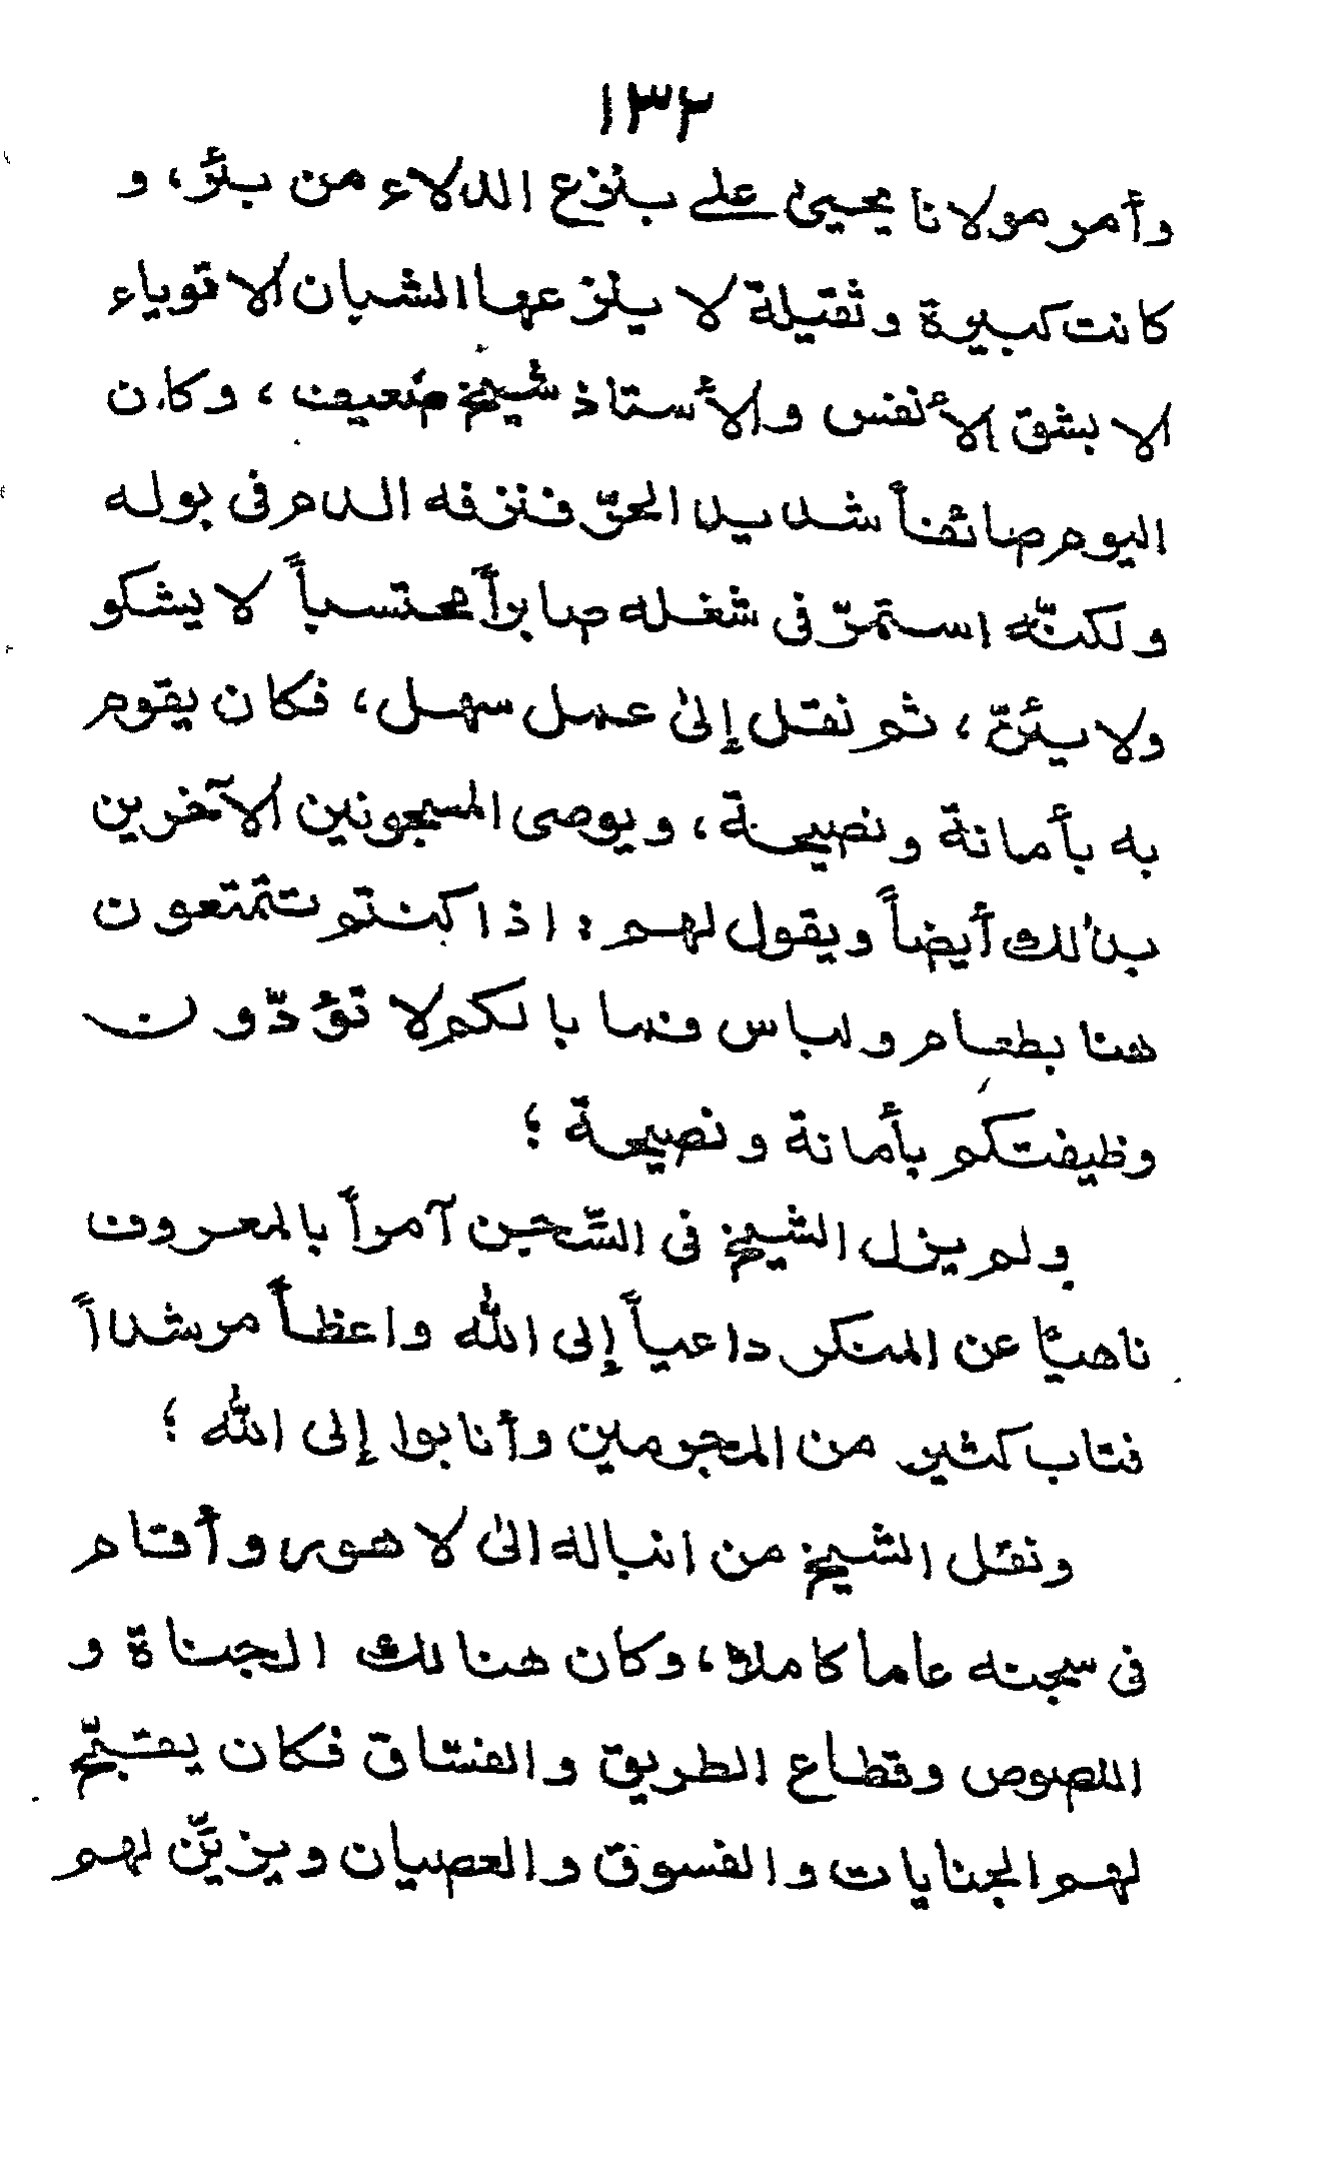 ١٣٢
وأمر مولانا يحيىٰ على بنزع الدلاء من بئر، و
كانت كبيرة وثقيلة لا ينزعها الشبان الاقوياء
الا بشق الأنفس والأستاذ شيخ ضعيف، وكان
اليوم صائفاً شديد الحرّ فنزفه الدم فى بوله
ولكنّه استمرّ فى شغله صابراً محتسباً لا يشكو
ولا يئنّ، ثم نقل إلىٰ عمل سهل، فكان يقوم
به بأمانة ونصيحة، ويوصى المسجونين الآخرين
بذٰلك أيضاً ويقول لهم: اذا كنتم تتمتعون
هنا بطعام ولباس فما بالكم لا تؤدّون
وظيفتكم بأمانة ونصيحة؛
ولم يزل الشيخ فى السّجن آمراً بالمعروف
ناهيًا عن المنكر داعياً إلى الله واعظاً مرشداً
فتاب كثير من المجرمين وأنابوا إلى الله؛
ونقل الشيخ من انباله الىٰ لاهور وأقام
فى سجنه عاما كاملا، وكان هنالك الجناة و
اللصوص وقطاع الطريق والفسّاق فكان يقبّح
لهم الجنايات والفسوق والعصيان ويزيّن لهم